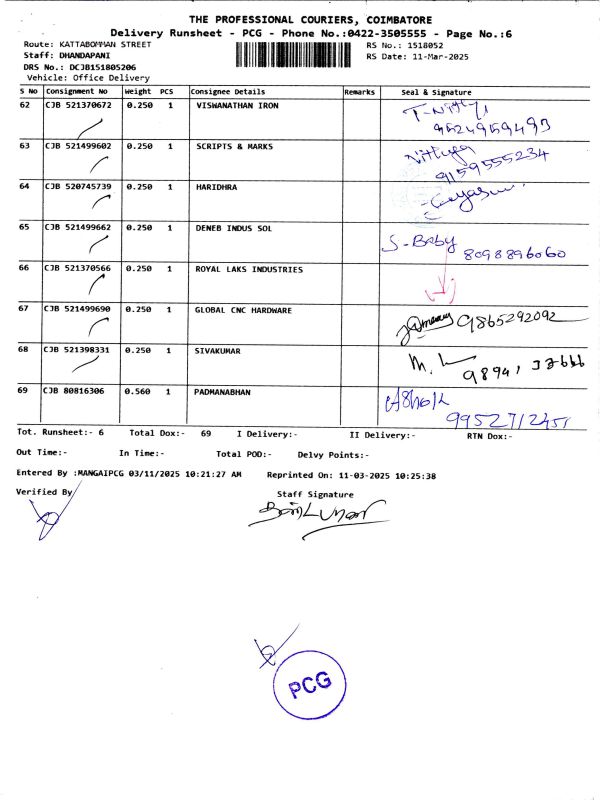 THE PROFESSIONAL COURIERS, COIMBATORE
Delivery Runsheet - PCG - Phone No.:0422-3505555 - Page No.:6
Route: KATTABOMMAN STREET
RS No.: 1518052
Staff: DHANDAPANI
RS Date: 11-Mar-2025
DRS No.: DCJB151805206
Vehicle: Office Delivery
S No Consignment No Weight PCS Consignee Details Remarks Seal & Signature
62 CJB 521370672 0.250 1 VISWANATHAN IRON
9524959493
63 CJB 521499602 0.250 1 SCRIPTS & MARKS Nithya
9159555234
64 CJB 520745739 0.250 1 HARIDHRA
65 CJB 521499662 0.250 1 DENEB INDUS SOL S-Baby
8098896060
66 CJB 521370566 0.250 1 ROYAL LAKS INDUSTRIES
67 CJB 521499690 0.250 1 GLOBAL CNC HARDWARE 9865292092
68 CJB 521398331 0.250 1 SIVAKUMAR
69 CJB 80816306 0.560 1 PADMANABHAN Ashok
Tot. Runsheet:- 6 Total Dox:- 69 I Delivery:- II Delivery:- RTN Dox:-
Out Time:- In Time:- Total POD:- Delvy Points:-
Entered By :MANGAIPCG 03/11/2025 10:21:27 AM Reprinted On: 11-03-2025 10:25:38
Verified By
Staff Signature
PCG